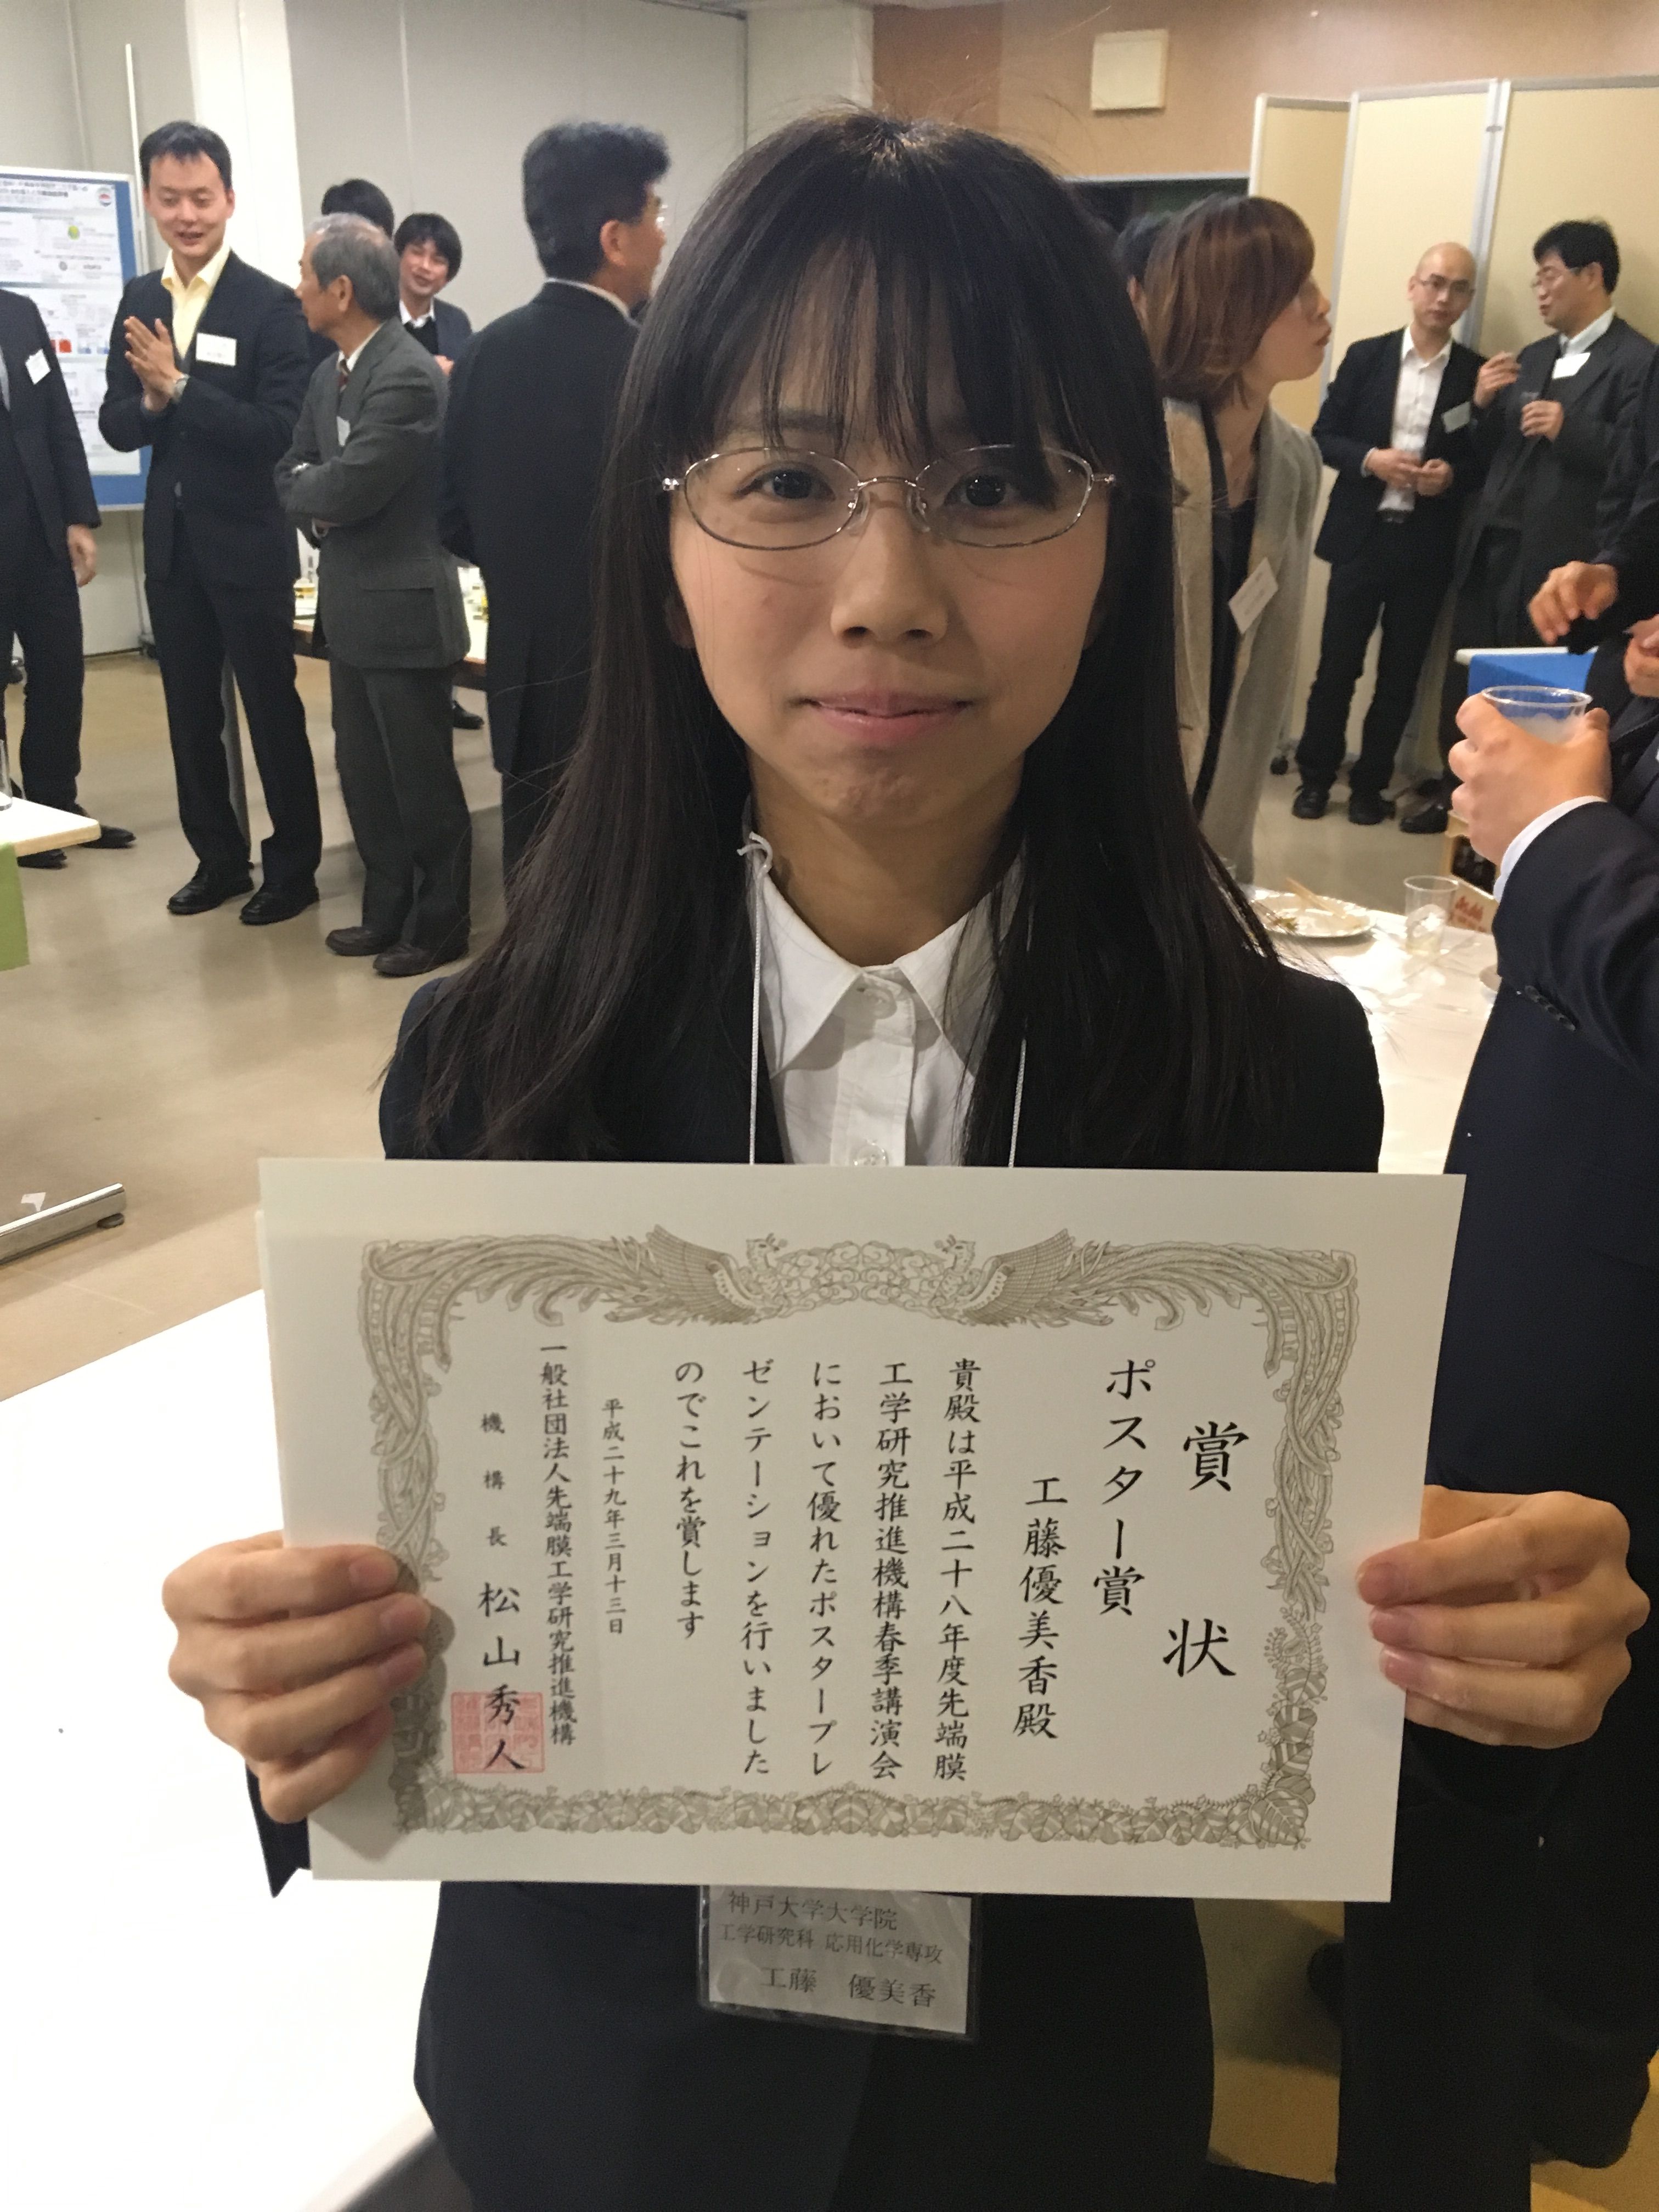 賞状
ポスター賞
工藤優美香殿
貴殿は平成二十八年度先端膜
工学研究推進機構春季講演会
において優れたポスタープレ
ゼンテーションを行いました
のでこれを賞します
平成二十九年三月十三日
一般社団法人先端膜工学研究推進機構
機構長 松山秀人
神戸大学大学院
工学研究科 応用化学専攻
工藤 優美香
Asahi